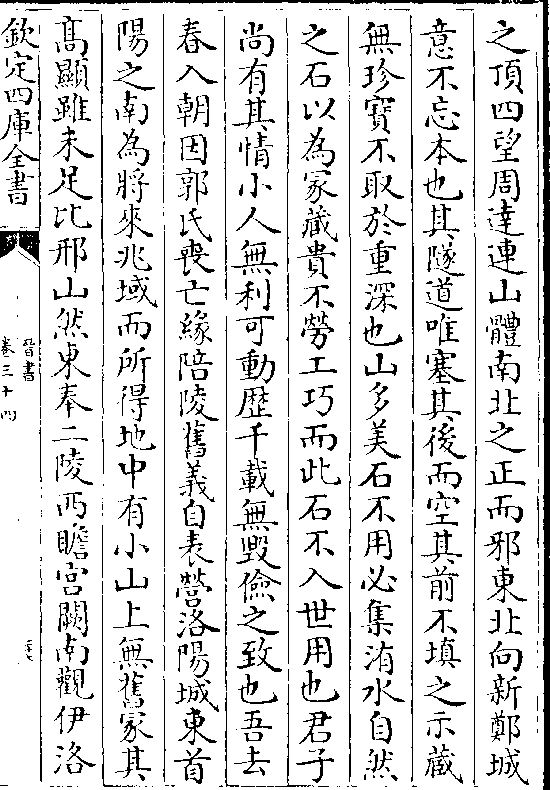 之頂四望周達連山體南北之正而邪東北向新鄭城
意不忘本也其隧道唯塞其後而空其前不填之示藏
無珍寳不取於重深也山多美石不用必集洧水自然
之石以為冢藏貴不勞工巧而此石不入世用也君子
尚有其情小人無利可動歴千載無毁儉之致也吾去
春入朝因郭氏喪亡緣陪陵舊義自表營洛陽城東首
陽之南為將來兆域而所得地中有小山上無舊冢其
髙顯雖未足比邢山然東奉二陵西瞻宫闕南觀伊洛
欽定四庫全書
晉書
卷三十四